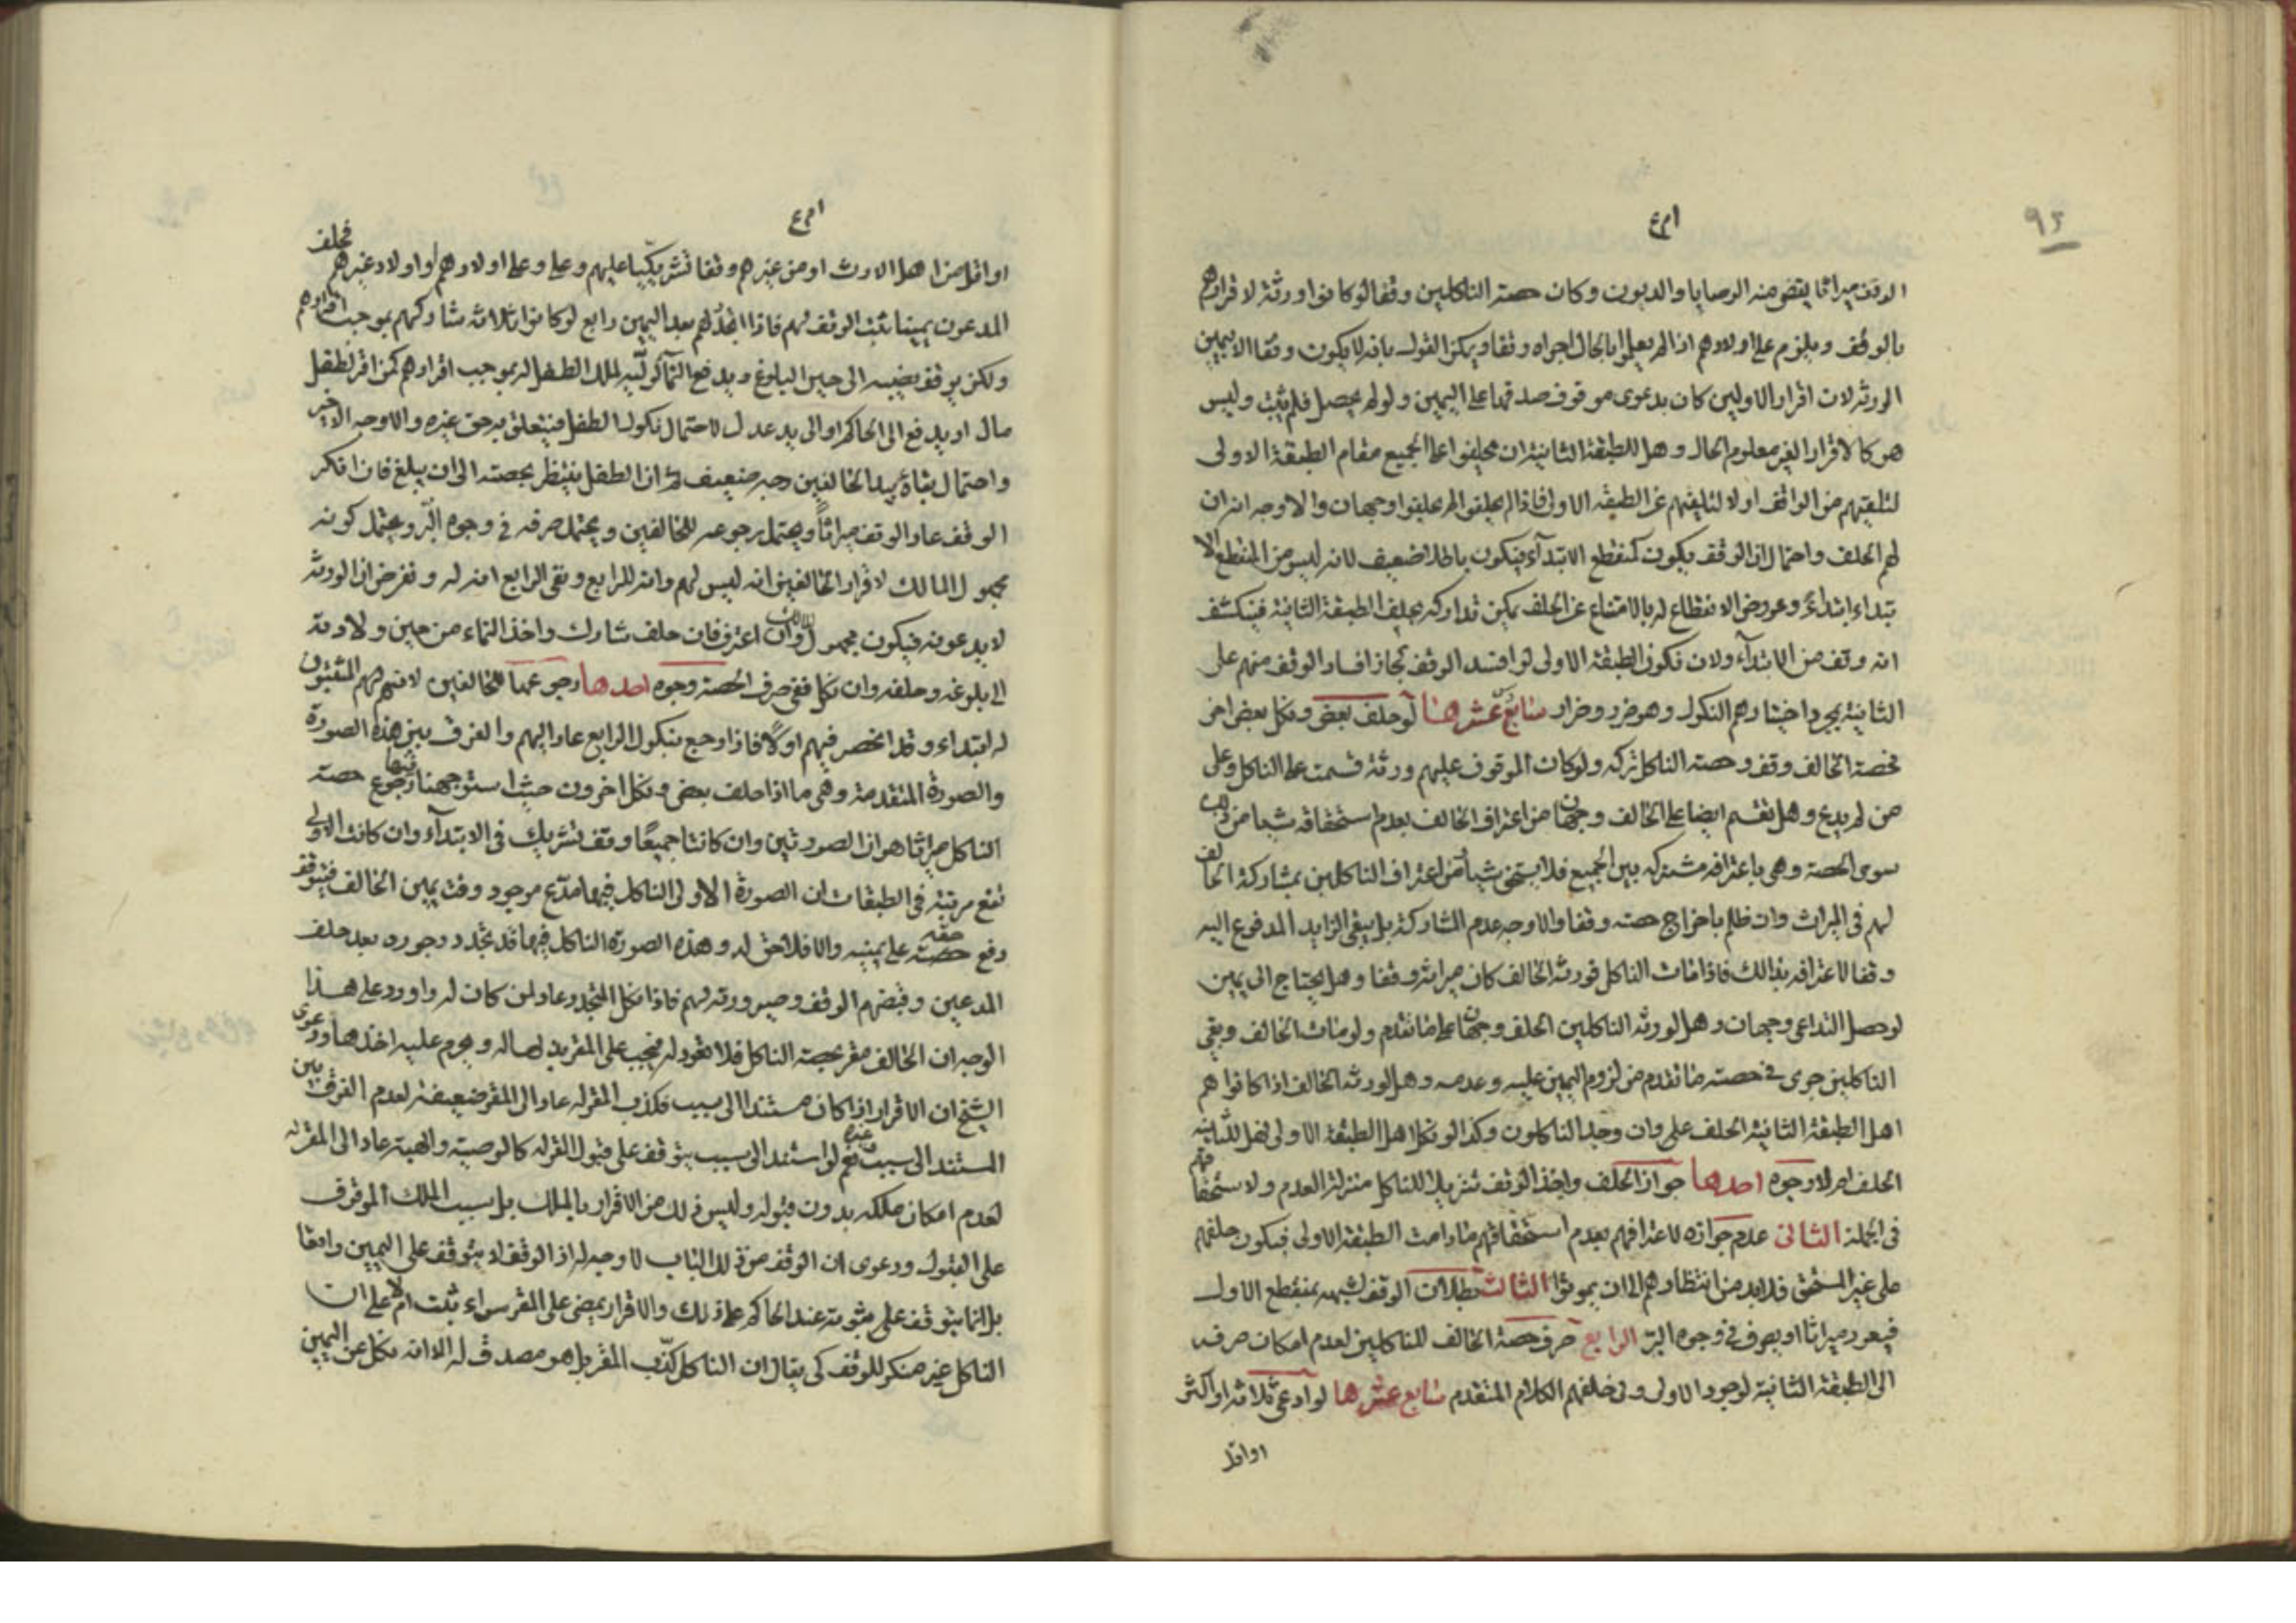 ٩٢
الوقف ميراثا يقضى منه الوصايا والديون وكان حصته الناكلين وقفا لو كانوا ورثة لاقرارهم
بالوقف ويلزم على اولادهم اذا لم يعلموا بالحال اجراه وقفا ويمكن القول بانه لا يكون وقفا الا بيمين
الورثة لان اقرار الاولين كان بدعوى موقوف صدقها على اليمين ولو لم يحصل فلم يثبت وليس
هو كالاقرار الغير معلوم الحال وهل للطبقة الثانية ان يحلفوا على الجميع مقام الطبقة الاولى
لتلقيهم من الواقف اولا لتلقيهم عن الطبقة الاولى فاذا لم يحلفوا لم يحلفوا وجهان والاوجه ان
لهم الحلف واحتمال ان الوقف يكون كمنقطع الابتدآء فيكون باطلا ضعيف لانه ليس من المنقطع الا
بتداء ابتداءً وعروض الانقطاع له بالامتناع عن الحلف يمكن تداركه بحلف الطبقة الثانية فينكشف
انه وقف من الابتدآء ولان نكون الطبقة الاولى لو افسد الوقف لجاز افساد الوقف منهم على
الثانية بمجرد اختيارهم النكول وهو ضرر وضرار سادس عشرها لو حلف بعض ونكل بعض اخر
فحصة الحالف وقف وحصته الناكل تركه ولو كان الموقوف عليهم ورثة قسمت على الناكل وعلى
من لم يدع وهل تقسم ايضا على الحالف وجهان من اعتراف الحالف بعدم استحقاقه شيئا من
سوى الحصة وهى باعترافه مشتركه بين الجميع فلا يستحق شيئا من اعتراف الناكلين بمشاركة الحالف
لهم فى الميراث وان ظلم باخراج حصته وقفا والاوجه عدم المشاركة بل يبقى الزايد المدفوع اليه
وقفا لاعترافه بذالك فاذا مات الناكل فورثه الحالف كان ميراثه وقفا وهل يحتاج الى يمين
لو حصل التداعى وجهان وهل لورثه الناكلين الحلف وجهان على ما تقدم ولو مات الحالف وبقى
الناكلين جرى فى حصته ما تقدم من لزوم اليمين عليه وعدمه وهل لورثه الحالف اذا كانوا هم
اهل الطبقة الثانية الحلف على وان وجد الناكلون وكذا لو نكل اهل الطبقة الاولى فهل للثانية
الحلف ام لا وجوه احدها جواز الحلف واخذ الوقف تنزيلا للناكل منزلة العدم ولاستحقاقهم
فى الجملة الثانى عدم جوازه لاعترافهم بعدم استحقاقهم مادامت الطبقة الاولى فيكون حلفهم
على غير المستحق فلابد من انتظارهم الى ان يموتوا الثالث بطلان الوقف لشبهه بمنقطع الاول
فيعود ميراثا او يصرف فى وجوه البر الرابع صرف حصة الحالف للناكلين لعدم امكان صرفه
الى الطبقة الثانية لوجود الاولى وفى خلفهم الكلام المتقدم سابع عشرها لو ادعى ثلاثة او اكثر
او اقل
او اقل من اهل الارث او من غيرهم وقفا تشريكيّا عليهم وعلى وعلى اولادهم او اولاد غيرهم فحلف
المدعون يمينا ثبت الوقف لهم فاذا تجدّد لهم بعد اليمين رابع لو كانوا ثلاثة شاركهم بموجب اقرارهم
ولكن يوقف نصيبه الى حين البلوغ ويدفع النمآ لوليّه لملك الطفل له بموجب اقرارهم كمن اقر لطفل
مال او يدفع الى الحاكم او الى يد عدل لاحتمال نكول الطفل فيتعلق به حق غيره والاوجه الاخير
واحتمال بقاؤه بيد الحالفين وجه ضعيف ثم ان الطفل ينتظر بحصته الى ان يبلغ فان انكر
الوقف عاد الوقف ميراثاً ويحتمل رجوعه للحالفين ويحتمل صرفه فى وجوه البّر ويحتمل كونه
مجهول المالك لاقرار الحالفين انه ليس لهم وانه للرابع ونفى الرابع انه له ونفرض ان الورثه
لا يدعونه فيكون مجهول المالك وان اعترف فان حلف شارك واخذ النماء من حين ولادته
الى بلوغه وحلفه وان نكل ففى صرف الحصة وجوه احدها رجوعها للحالفين لانهم هم المثبتون
له ابتداء وقد انحصر فيهم اولًا فاذا رجع بنكول الرابع عاد اليهم والفرق بين هذه الصورة
والصورة المتقدمة وهى ما اذا حلف بعض ونكل اخرون حيث استوجهنا فيها رجوع حصته
الناكل ميراثا هو ان الصورتين وان كانتا جميعًا وقف تشريك فى الابتدآء وان كانت الاولى
تقع مرتبة فى الطبقات ان الصورة الاولى الناكل فيها مدّع موجود وقت يمين الحالف فيتوقف
دفع حصته حقه على يمينه والا فلا حق له وهذه الصورة الناكل فيها قد تجدد وجوده بعد حلف
المدعين وقبضهم الوقف وصيرورته لهم فاذا نكل المتجدد عاد لمن كان له واورد على هذا
الوجه ان الحالف مقر بحصته الناكل فلا تعود له فيجب على المقر يد ايصاله ويحرم عليه اخذها ودعوى
الشيخ ان الاقرار اذا كان مستندا الى سبب فكذب المقر له عاد الى المقر ضعيفة لعدم الفرق بين
المستند الى سبب وغيره نعم لو استند الى سبب يتوقف على قبول المقر له كالوصية والهبة عاد الى المقر له
لعدم امكان ملكه بدون قبوله وليس ذلك من الاقرار بالملك بل بسبب الملك الموقوف
على القبول ودعوى ان الوقف من ذلك الباب لا وجه له اذ الوقف لا يتوقف على اليمين واقعا
بل انما يتوقف على ثبوته عند الحاكم على ذلك والاقرار يمضى على المقر سواء ثبت ام لا على ان
الناكل غير منكر للوقف كى يقال ان الناكل كذّب المقر بل هو مصدق له الا انه نكل عن اليمين